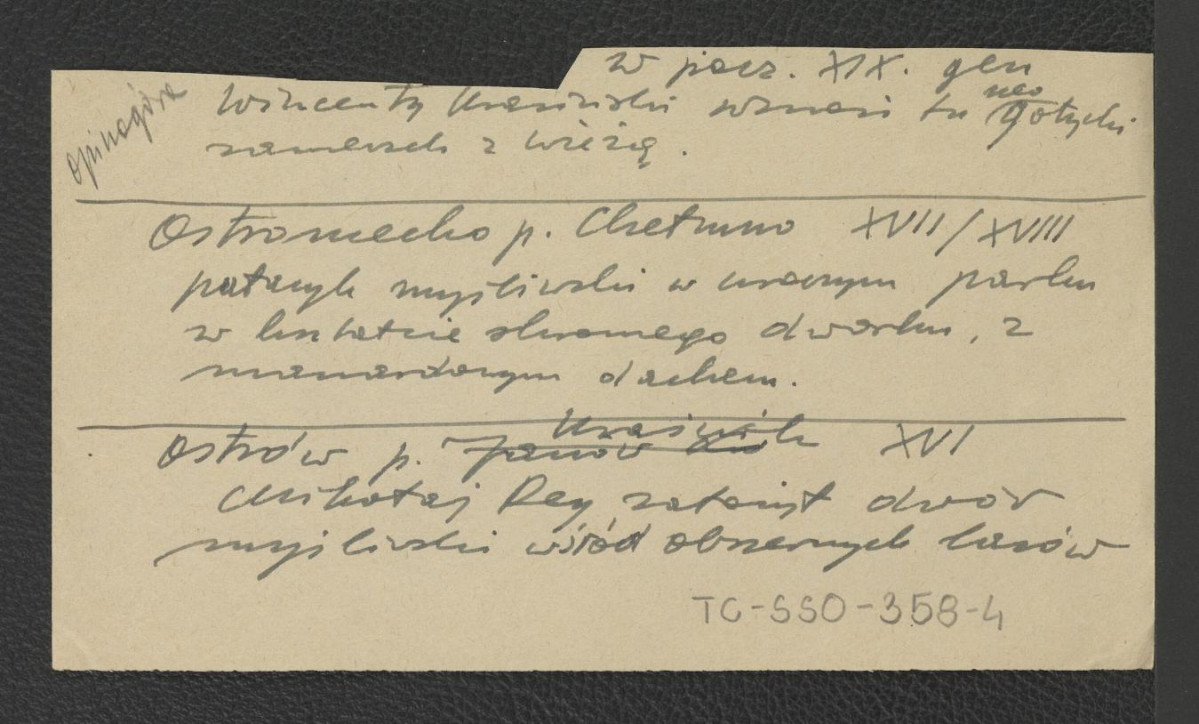 w pocz. XIX. gen
opinogóra
Wincenty Krasiński wznosi tu neo gotycki
zameczek z wieżą.
Ostromecko p. Chełmno XVII/XVIII
pałacyk myśliwski w uroczym parku
w kształcie skromnego dworku, z
mansardowym dachem.
Kraśnik
Ostrów p. Janów XVI
Mikołaj Rey założył dwór
myśliwski wśród obszernych lasów
TC-SSO-358-4